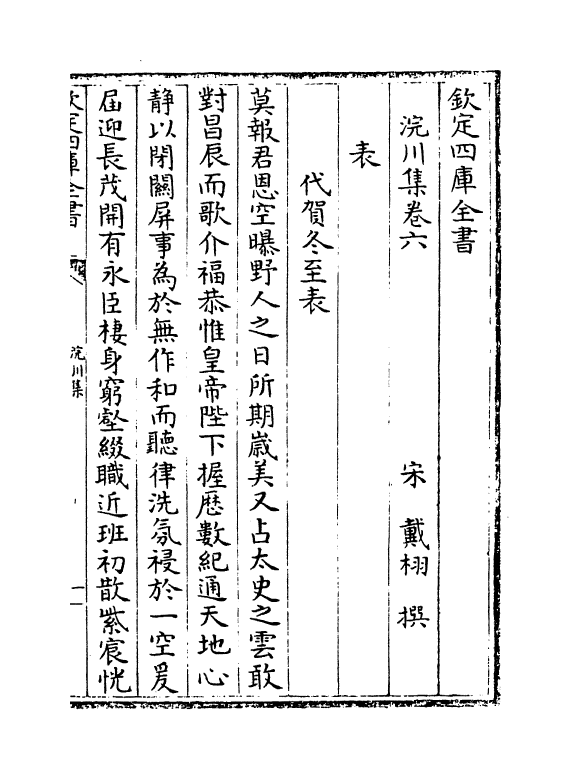 欽定四庫全書
浣川集卷六
宋 戴栩 撰
表
代賀冬至表
莫報君恩空曝野人之日所期嵗美又占太史之雲敢
對昌辰而歌介福恭惟皇帝陛下握厯數紀通天地心
静以閉闗屏事為於無作和而聽律洗氛祲於一空爰
届迎長茂開有永臣棲身窮壑綴職近班初散紫宸恍
欽定四庫全書
浣川集
一